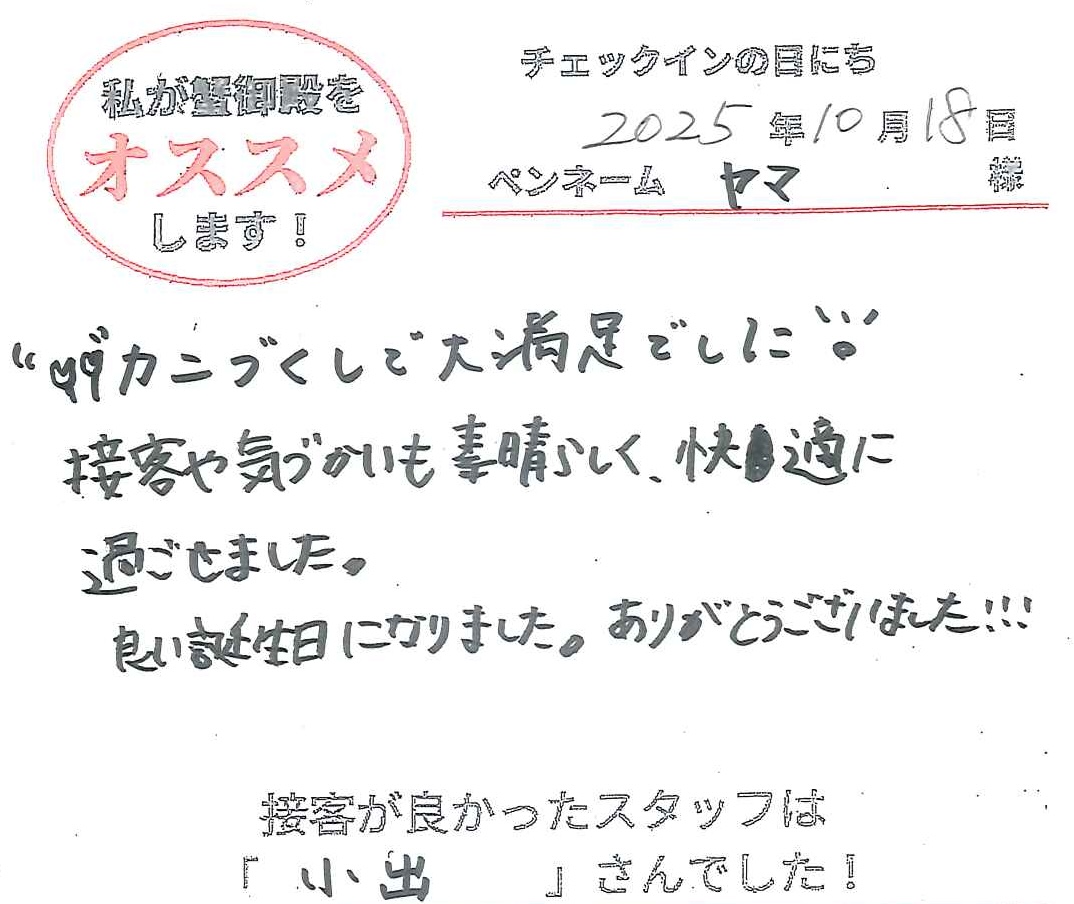 私が蟹御殿を
オススメ
します！
チェックインの日にち
2025年10月18日
ペンネーム ヤマ 様
カニづくしで大満足でした
接客や気づかいも素晴らしく、快適に
過ごせました。
良い誕生日になりました。ありがとうございました!!!
接客が良かったスタッフは
「 小出 」さんでした！